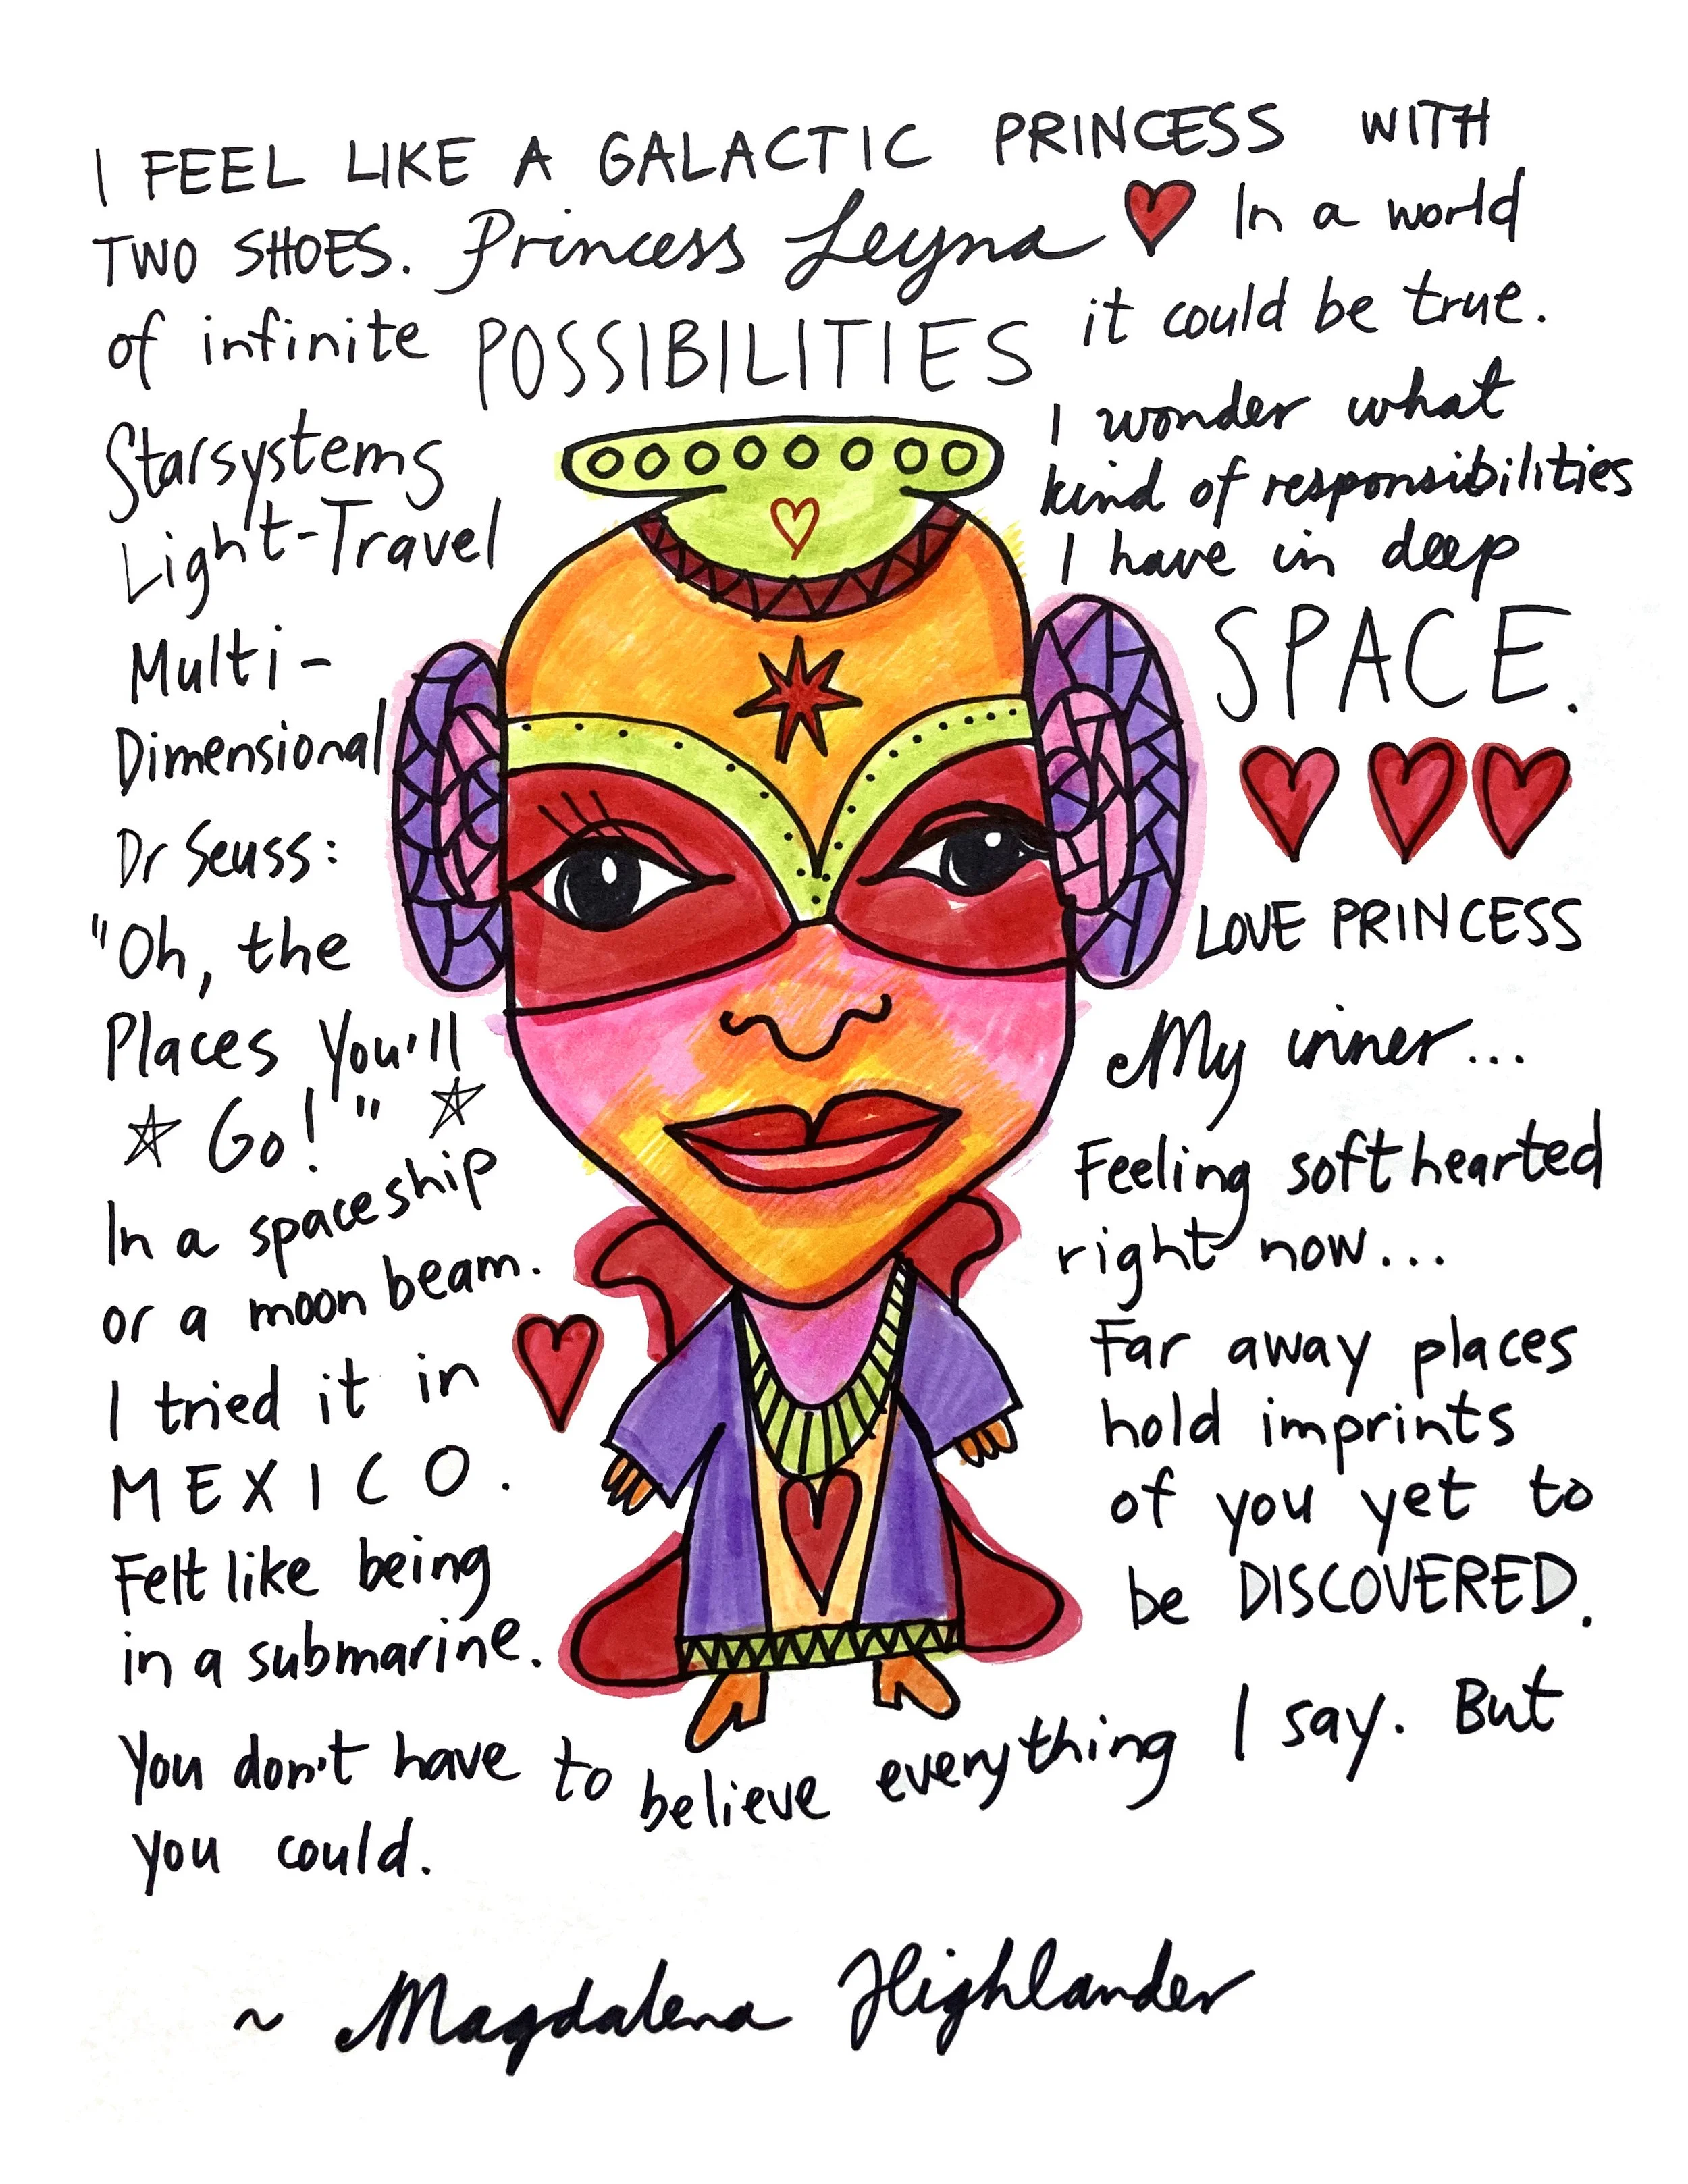 I FEEL LIKE A GALACTIC PRINCESS WITH
TWO SHOES. Princess Leyna In a world
of infinite POSSIBILITIES it could be true.
Starsystems
Light-Travel
Multi-
Dimensional
Dr Seuss:
"Oh, the
Places You'll
Go!"
In a spaceship
or a moon beam.
I tried it in
MEXICO.
Felt like being
in a submarine.
I wonder what
kind of responsibilities
I have in deep
SPACE.
LOVE PRINCESS
My inner...
Feeling softhearted
right now...
Far away places
hold imprints
of you yet to
be DISCOVERED.
You don't have to believe everything I say. But
you could.
~ Magdalena Highlander